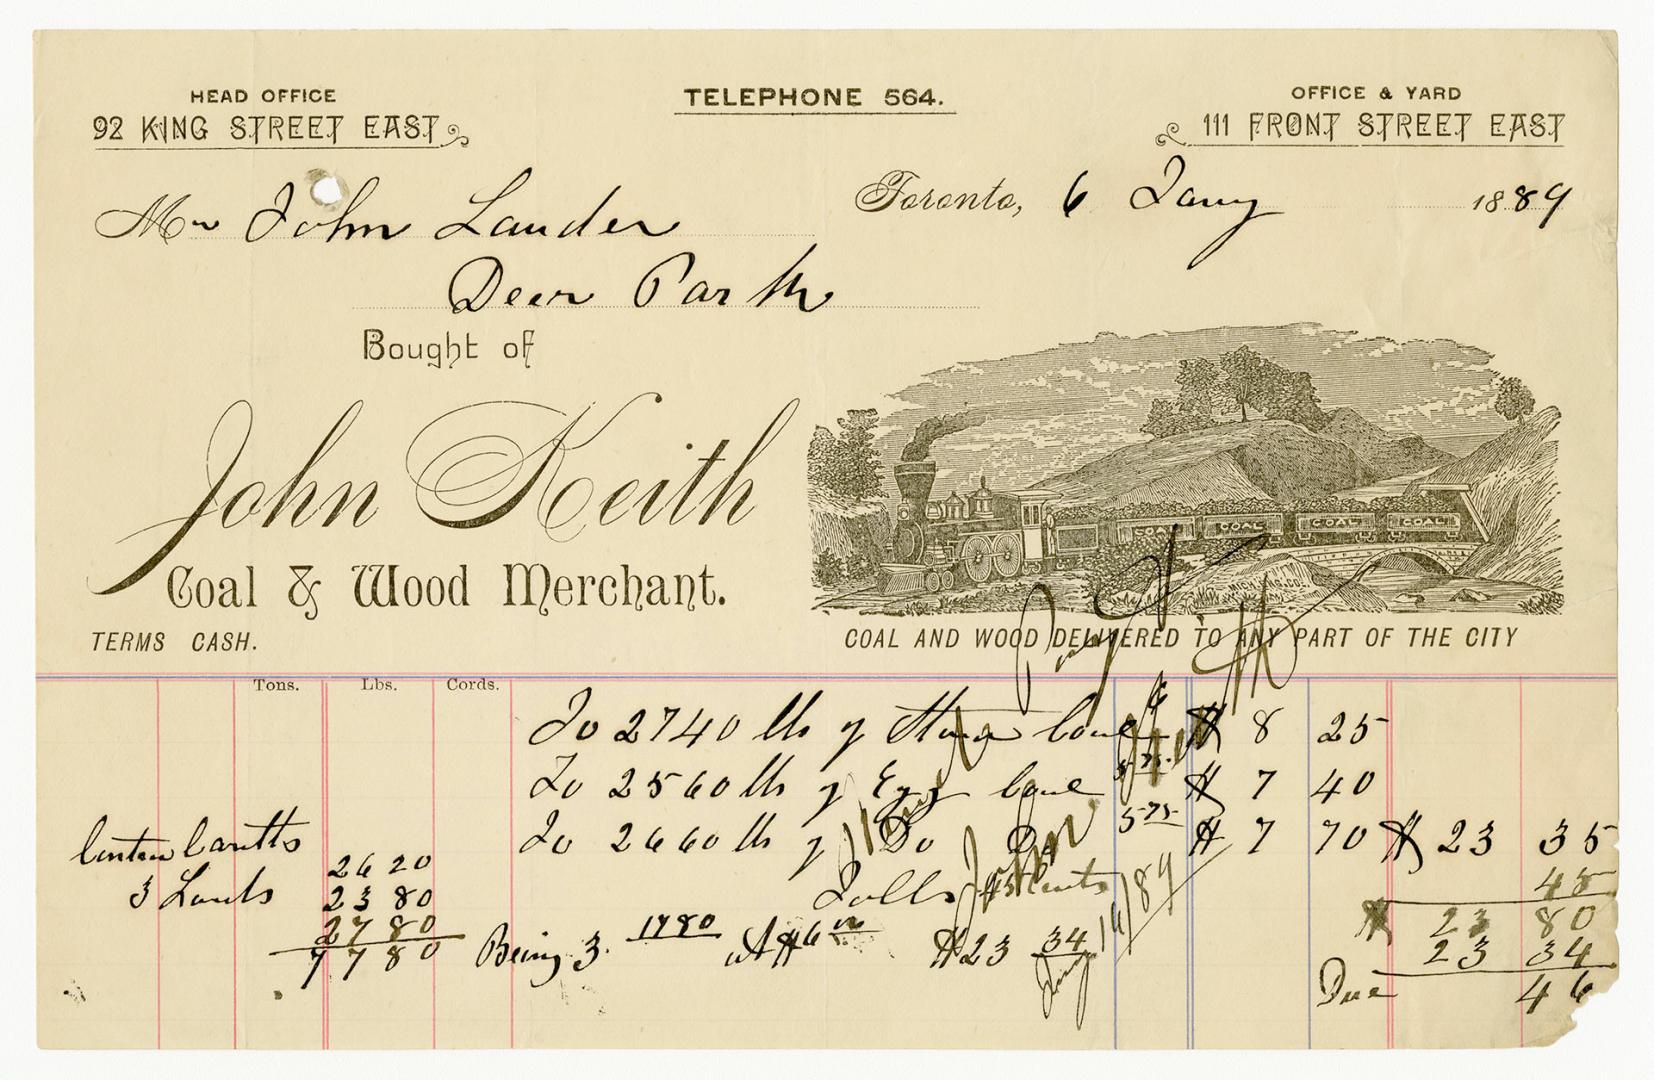 HEAD OFFICE
92 KING STREET EAST
TELEPHONE 564.
OFFICE & YARD
111 FRONT STREET EAST
Toronto, 6 Jany 1889
Mr John Lauder
Deer Park
Bought of
John Keith
Coal & Wood Merchant.
TERMS CASH.
COAL COAL COAL COAL
COAL AND WOOD DELIVERED TO ANY PART OF THE CITY
Tons. Lbs. Cords.
To 2740 lbs of Stove Coal $ 8 25
To 2560 lbs of Egg Coal 5 75 $ 7 40
To 2660 lbs of Do Do 5 75 $ 7 70 $ 23 35
Tolls 45 Cents 45
$ 23 80
23 34
Due 46
3 Loads
2620
2380
2780
7780
Being 3 1780 at $6 00 $23 34
John Keith
Jany 16/89